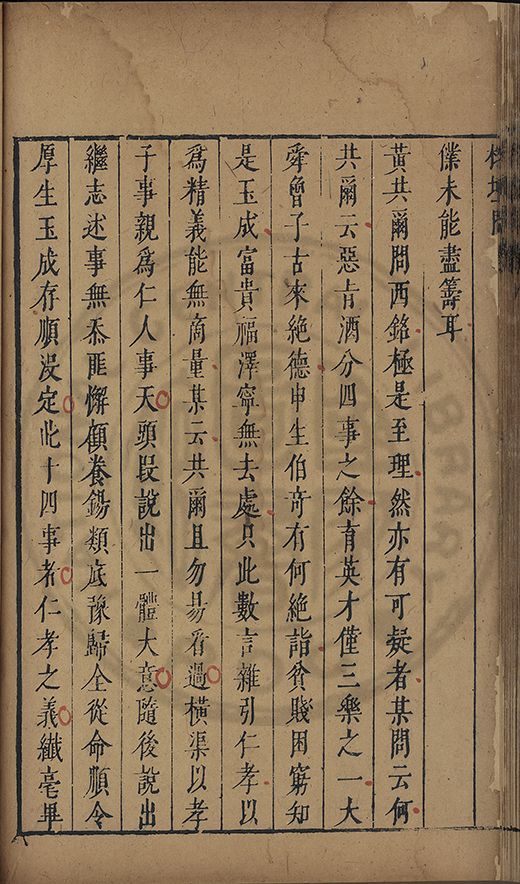 榕壇問
僕未能盡籌耳
黃共爾問西銘極是至理然亦有可疑者某問云何
共爾云惡旨酒分四事之餘育英才僅三樂之一大
舜曾子古來絶德申生伯奇有何絶詣貧賤困窮知
是玉成富貴福澤寧無去處只此數言雜引仁孝以
為精義能無商量某云共爾且勿易看過橫渠以孝
子事親為仁人事天頭段說出一體大意隨後說出
繼志述事無忝匪懈顧養錫類底豫歸全從命順令
厚生玉成存順沒定此十四事者仁孝之義纖毫畢